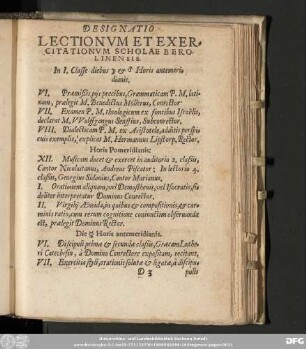 DESIGNATIO
LECTIONVM ET EXER-
CITATIONVM SCHOLAE BERO-
LINENSIS.
In I. Classe diebus ☽ & ♂ Horis antemeri-
dianis.
VI. Præmissis pijs precibus, Grammaticam P. M. lati-
nam, prælegit M. Benedictus Conrector.
VII. Examen P. M. theologicum ex fontibus Israëlis,
declarat M. VVolffgangus Subconrector.
VIII. Dialecticam P. M. ex Aristotele, additis perspi-
cuis exemplis, explicat M. Hermannus Rector.
Horis Pomeridianis:
XII. Musicam docet & exercet in auditorio 2. classis,
Cantor Nicolaitanus, Andreas Piscator; In lectorio 4.
classis, Georgius Cantor Marianus.
I. Orationem aliquam, vel Demosthenis, vel Isocratis, fi-
deliter interpretatur Dominus Conrector.
II. Virgilij Æneida, in quibus & compositionis, & car-
minis ratio, cum rerum cognitione coniunctim observanda
est, prælegit Dominus Rector.
Die ☿ Horis antemeridianis.
VI. Discipuli primæ & secundæ classis, Græcam Luthe-
ri Catechesin, à Domino Conrectore expositam, recitant.
VII. Exercitia styli, orationis solutæ & ligatæ, à discipu-
D 3 pulis